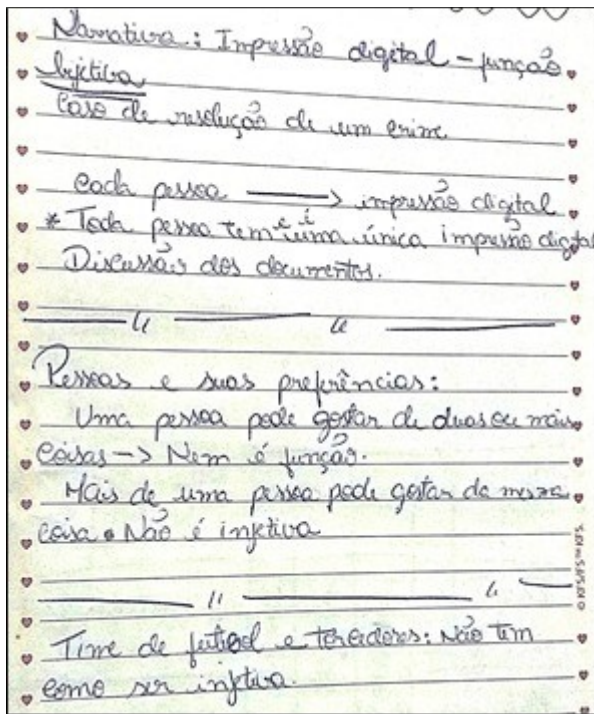 Narrativa: Impressão digital - função
bijetiva
Caso de resolução de um crime.
Cada pessoa → impressão digital
* Toda pessoa tem e é uma única impressão digital
Discussão dos documentos.
Pessoas e suas preferências:
Uma pessoa pode gostar de duas ou mais
coisas -> Nem é função.
Mais de uma pessoa pode gostar da mesma
coisa • Não é injetiva
Time de futebol e torcedores: Não tem
como ser injetiva.